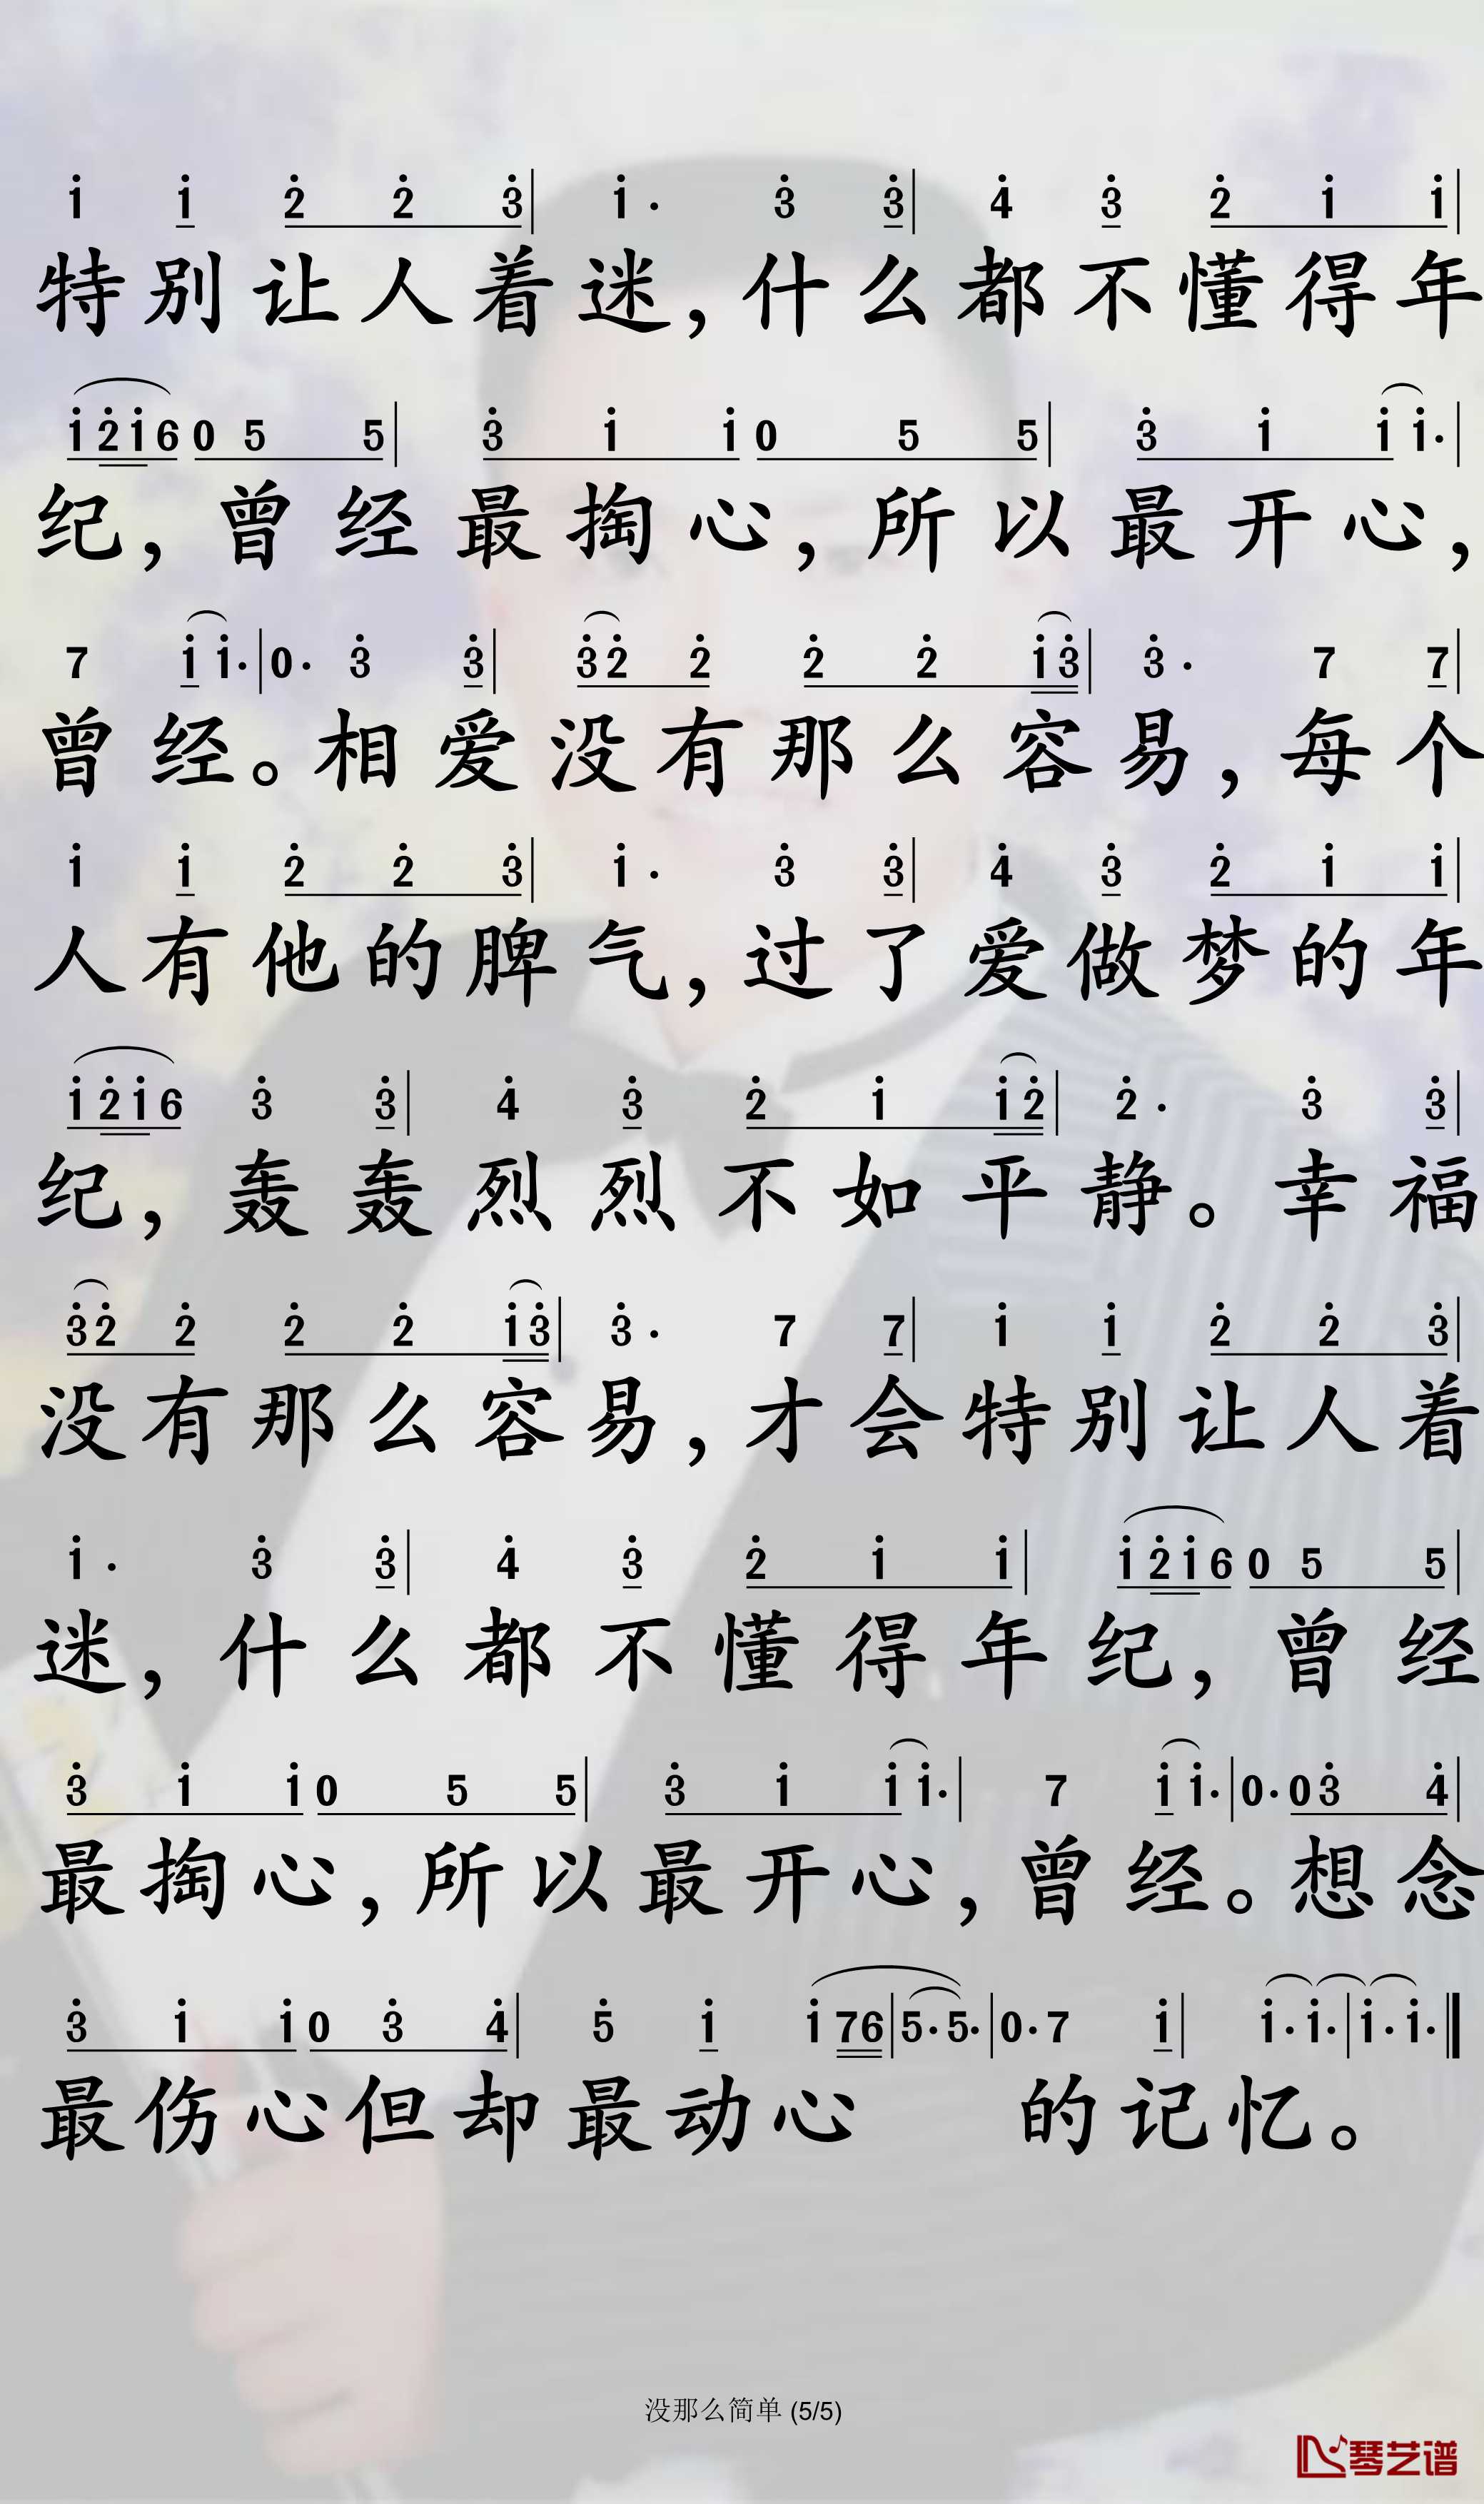 1̇ 1̇ 2̇ 2̇ 3̇ | 1̇ · 3̇ 3̇ | 4̇ 3̇ 2̇ 1̇ 1̇ |
特别让人着迷，什么都不懂得年
1̇ 2̇ 1̇ 6 0 5 5 | 3̇ 1̇ 1̇ 0 5 5 | 3̇ 1̇ 1̇ 1̇ · |
纪，曾经最掏心，所以最开心，
7 1̇ 1̇ · | 0 · 3̇ 3̇ | 3̇ 2̇ 2̇ 2̇ 2̇ 1̇ 3̇ | 3̇ · 7 7 |
曾经。相爱没有那么容易，每个
1̇ 1̇ 2̇ 2̇ 3̇ | 1̇ · 3̇ 3̇ | 4̇ 3̇ 2̇ 1̇ 1̇ |
人有他的脾气，过了爱做梦的年
1̇ 2̇ 1̇ 6 3̇ 3̇ | 4̇ 3̇ 2̇ 1̇ 1̇ 2̇ | 2̇ · 3̇ 3̇ |
纪，轰轰烈烈不如平静。幸福
3̇ 2̇ 2̇ 2̇ 2̇ 1̇ 3̇ | 3̇ · 7 7 | 1̇ 1̇ 2̇ 2̇ 3̇ |
没有那么容易，才会特别让人着
1̇ · 3̇ 3̇ | 4̇ 3̇ 2̇ 1̇ 1̇ | 1̇ 2̇ 1̇ 6 0 5 5 |
迷，什么都不懂得年纪，曾经
3̇ 1̇ 1̇ 0 5 5 | 3̇ 1̇ 1̇ 1̇ · | 7 1̇ 1̇ · | 0 · 0 3̇ 4̇ |
最掏心，所以最开心，曾经。想念
3̇ 1̇ 1̇ 0 3̇ 4̇ | 5̇ 1̇ 1̇ 7 6 | 5 · 5 · | 0 · 7 1̇ | 1̇ · 1̇ · | 1̇ · 1̇ · ‖
最伤心但却最动心 的记忆。
没那么简单 (5/5)
琴艺谱